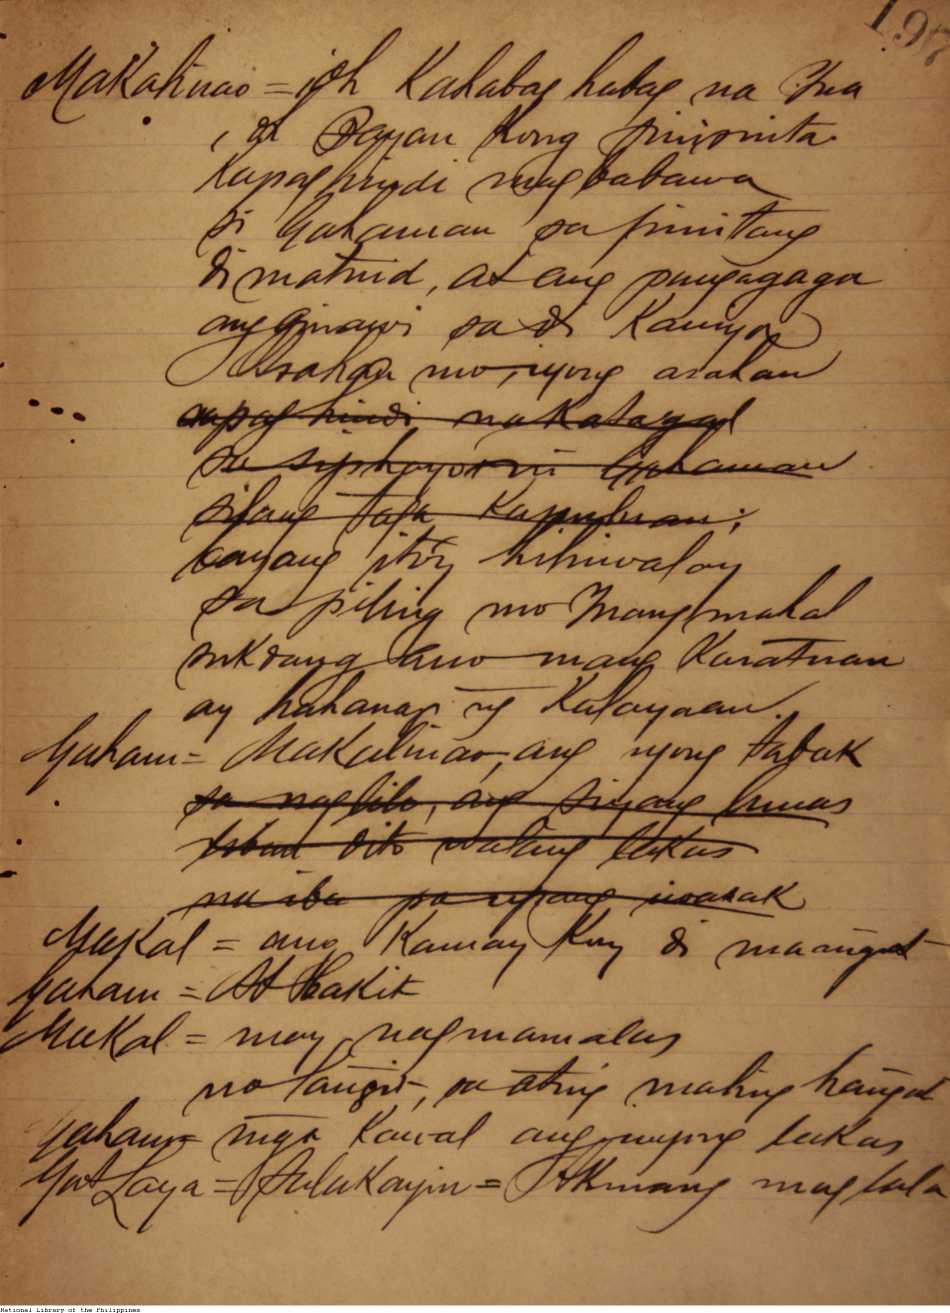 197
Makalinao = ioh Kahabag habag na Yna
, at Bayan Kong sinisinta
Kapag hindi magbabawa
si Gahaman sa pinitang
di matuid, at ang pangagaga
ang ginawi sa di Kaniya
Asahan mo, iyong asahan
kapag hindi nakatagal
sa siphayo ni Gahaman
silang taga Kapuluan;
bayang ito'y hihiwalay
sa piling mo Ynang mahal
sukdang ano mang Karatnan
ay hahanap ng Kalayaan.
Gaham = Makalinao, ang iyong tabak
sa naglilo, ang siyang lunas
dito walang lakas
na iba pa upang iwasak
Makal = ang Kamay Koy di
Gaham = At Bakit
Makal = may nagmamalas
na langit, sa ating maling hangad
Gaham = mga Kawal ang inyong lakas
Gat Laya = Salakayin = Akmang maglala
National Library of the Philippines